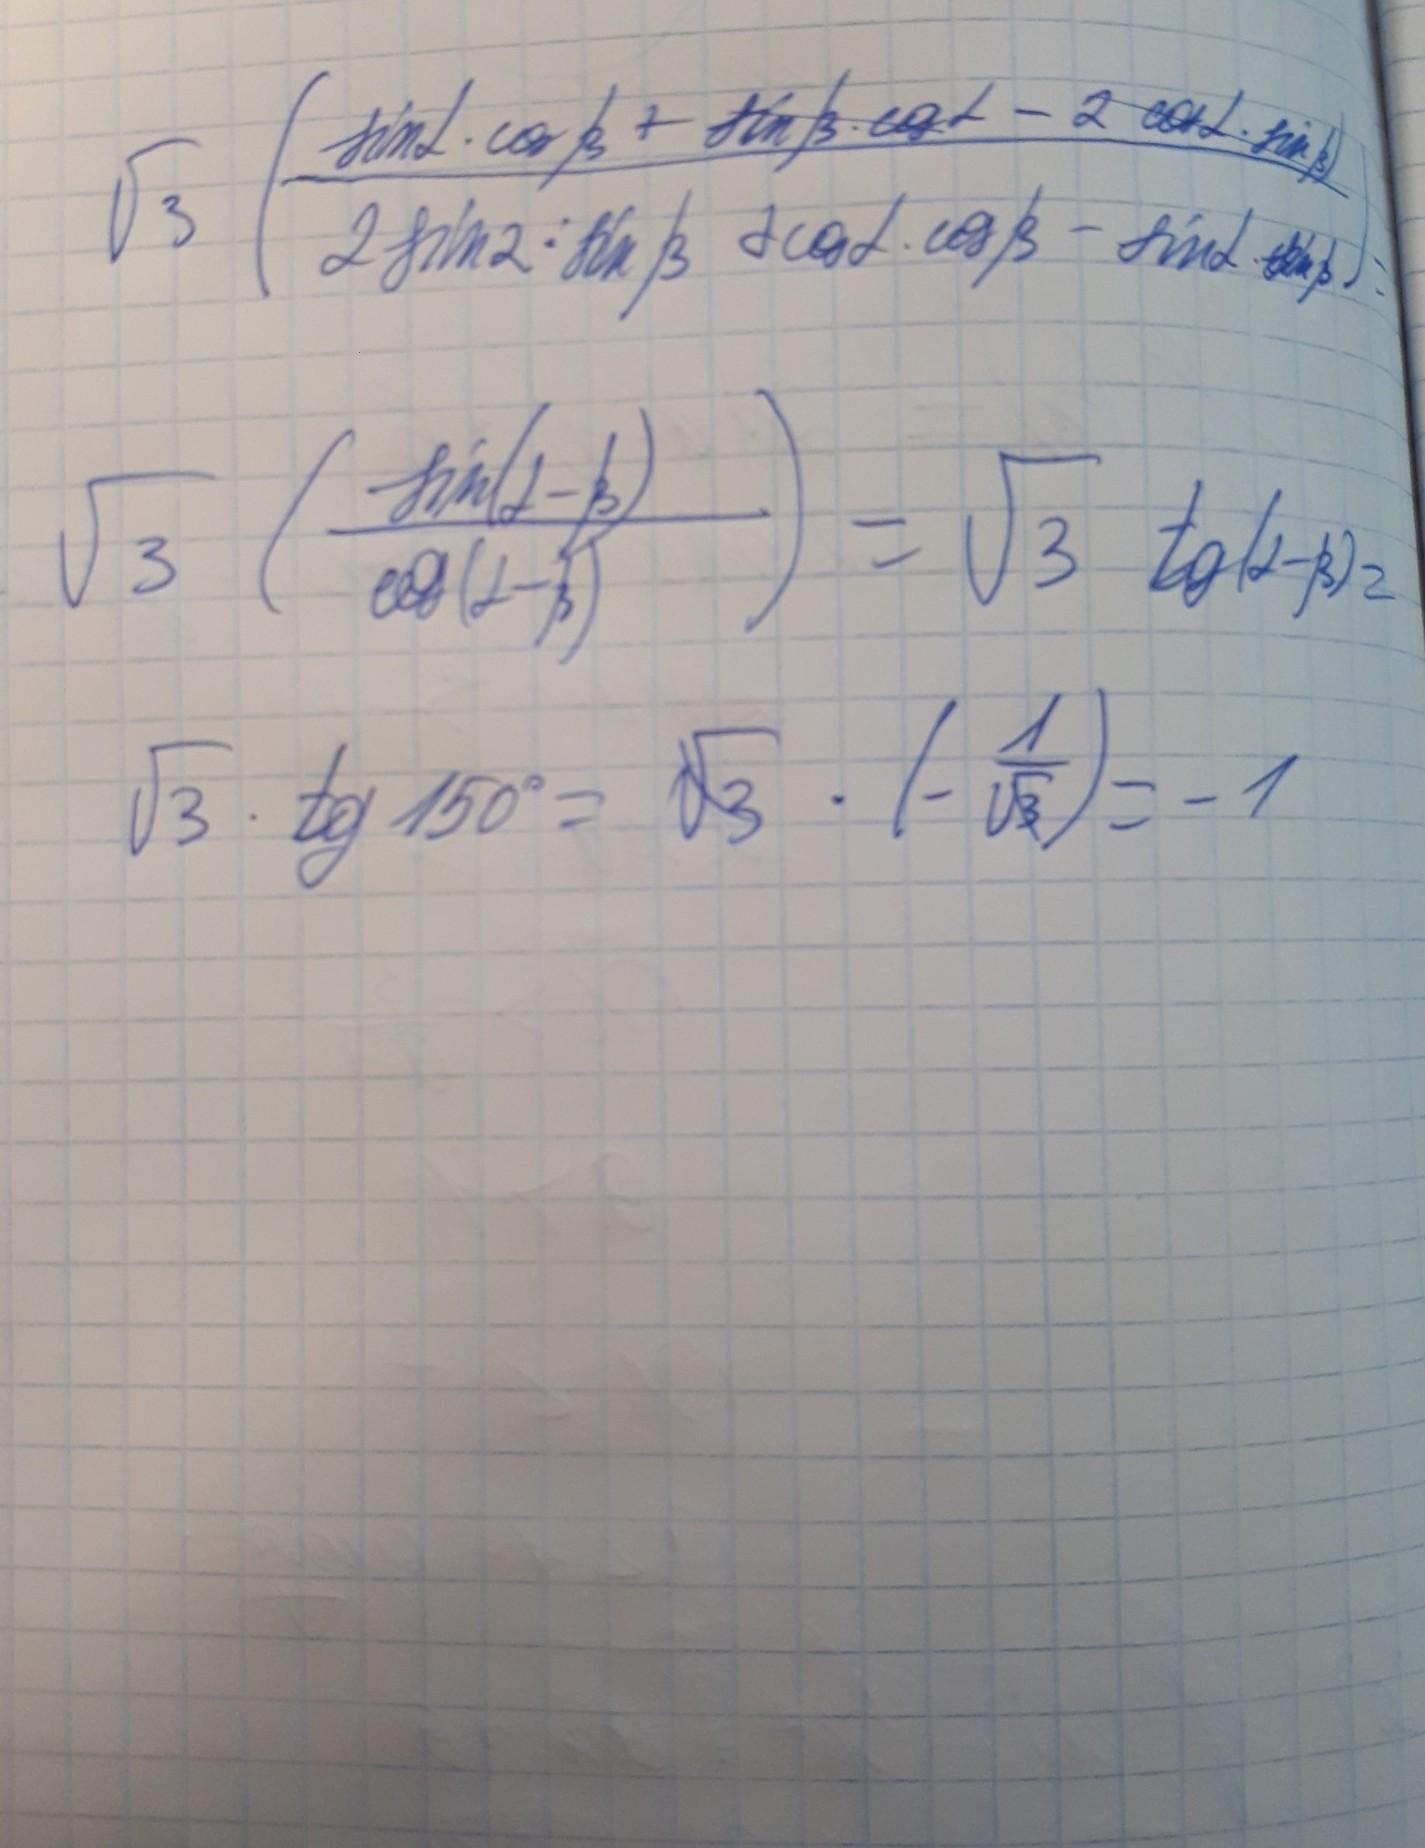 √3 (sinα · cos β + sin β · cos α − 2 cos α · sin β / 2 sin α · sin β + cos α · cos β − sin α · sin β) =
√3 (sin(α−β) / cos(α−β)) = √3 tg(α−β) =
√3 · tg 150° = √3 · (− 1/√3) = −1